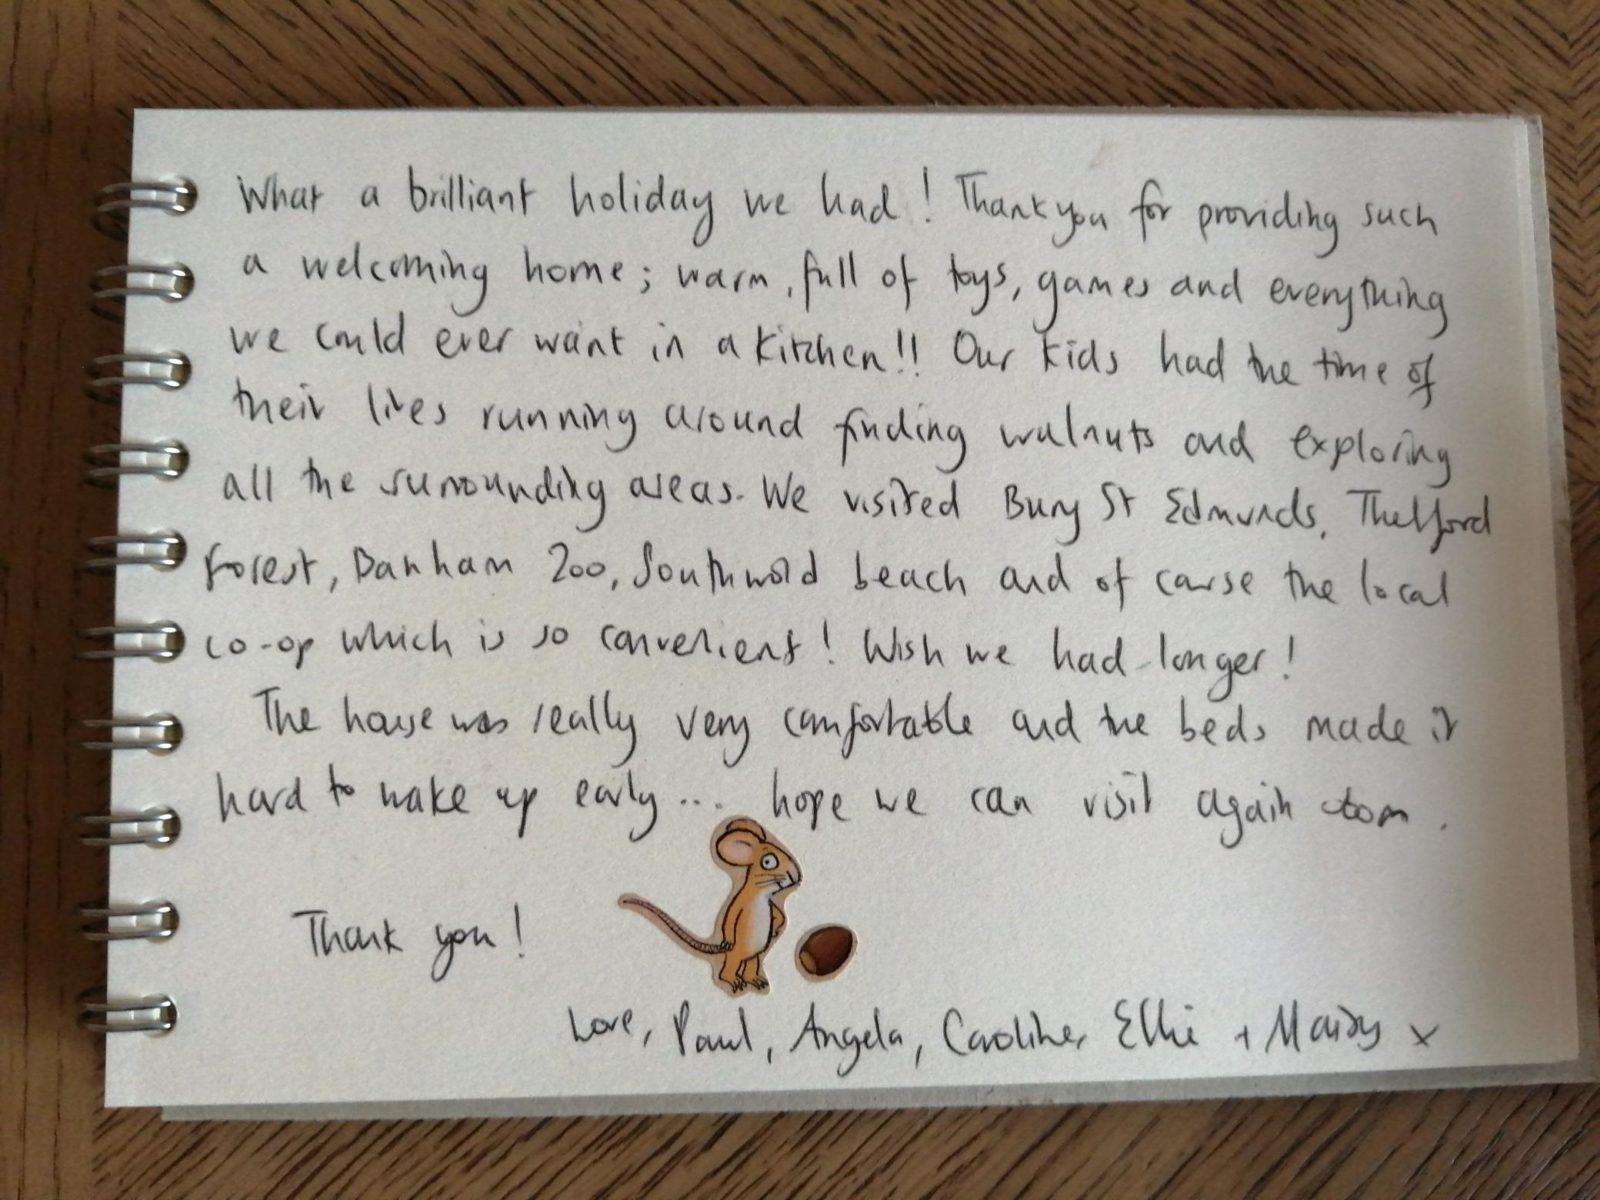 What a brilliant holiday we had! Thank you for providing such
a welcoming home; warm, full of toys, games and everything
we could ever want in a kitchen!! Our kids had the time of
their lives running around finding walnuts and exploring
all the surrounding areas. We visited Bury St Edmunds, Thetford
Forest, Banham Zoo, Southwold beach and of course the local
co-op which is so convenient! Wish we had longer!
The house was really very comfortable and the beds made it
hard to wake up early... hope we can visit again
Thank you!
Love, Paul, Angela, Caroline, Ellie + Maisy x